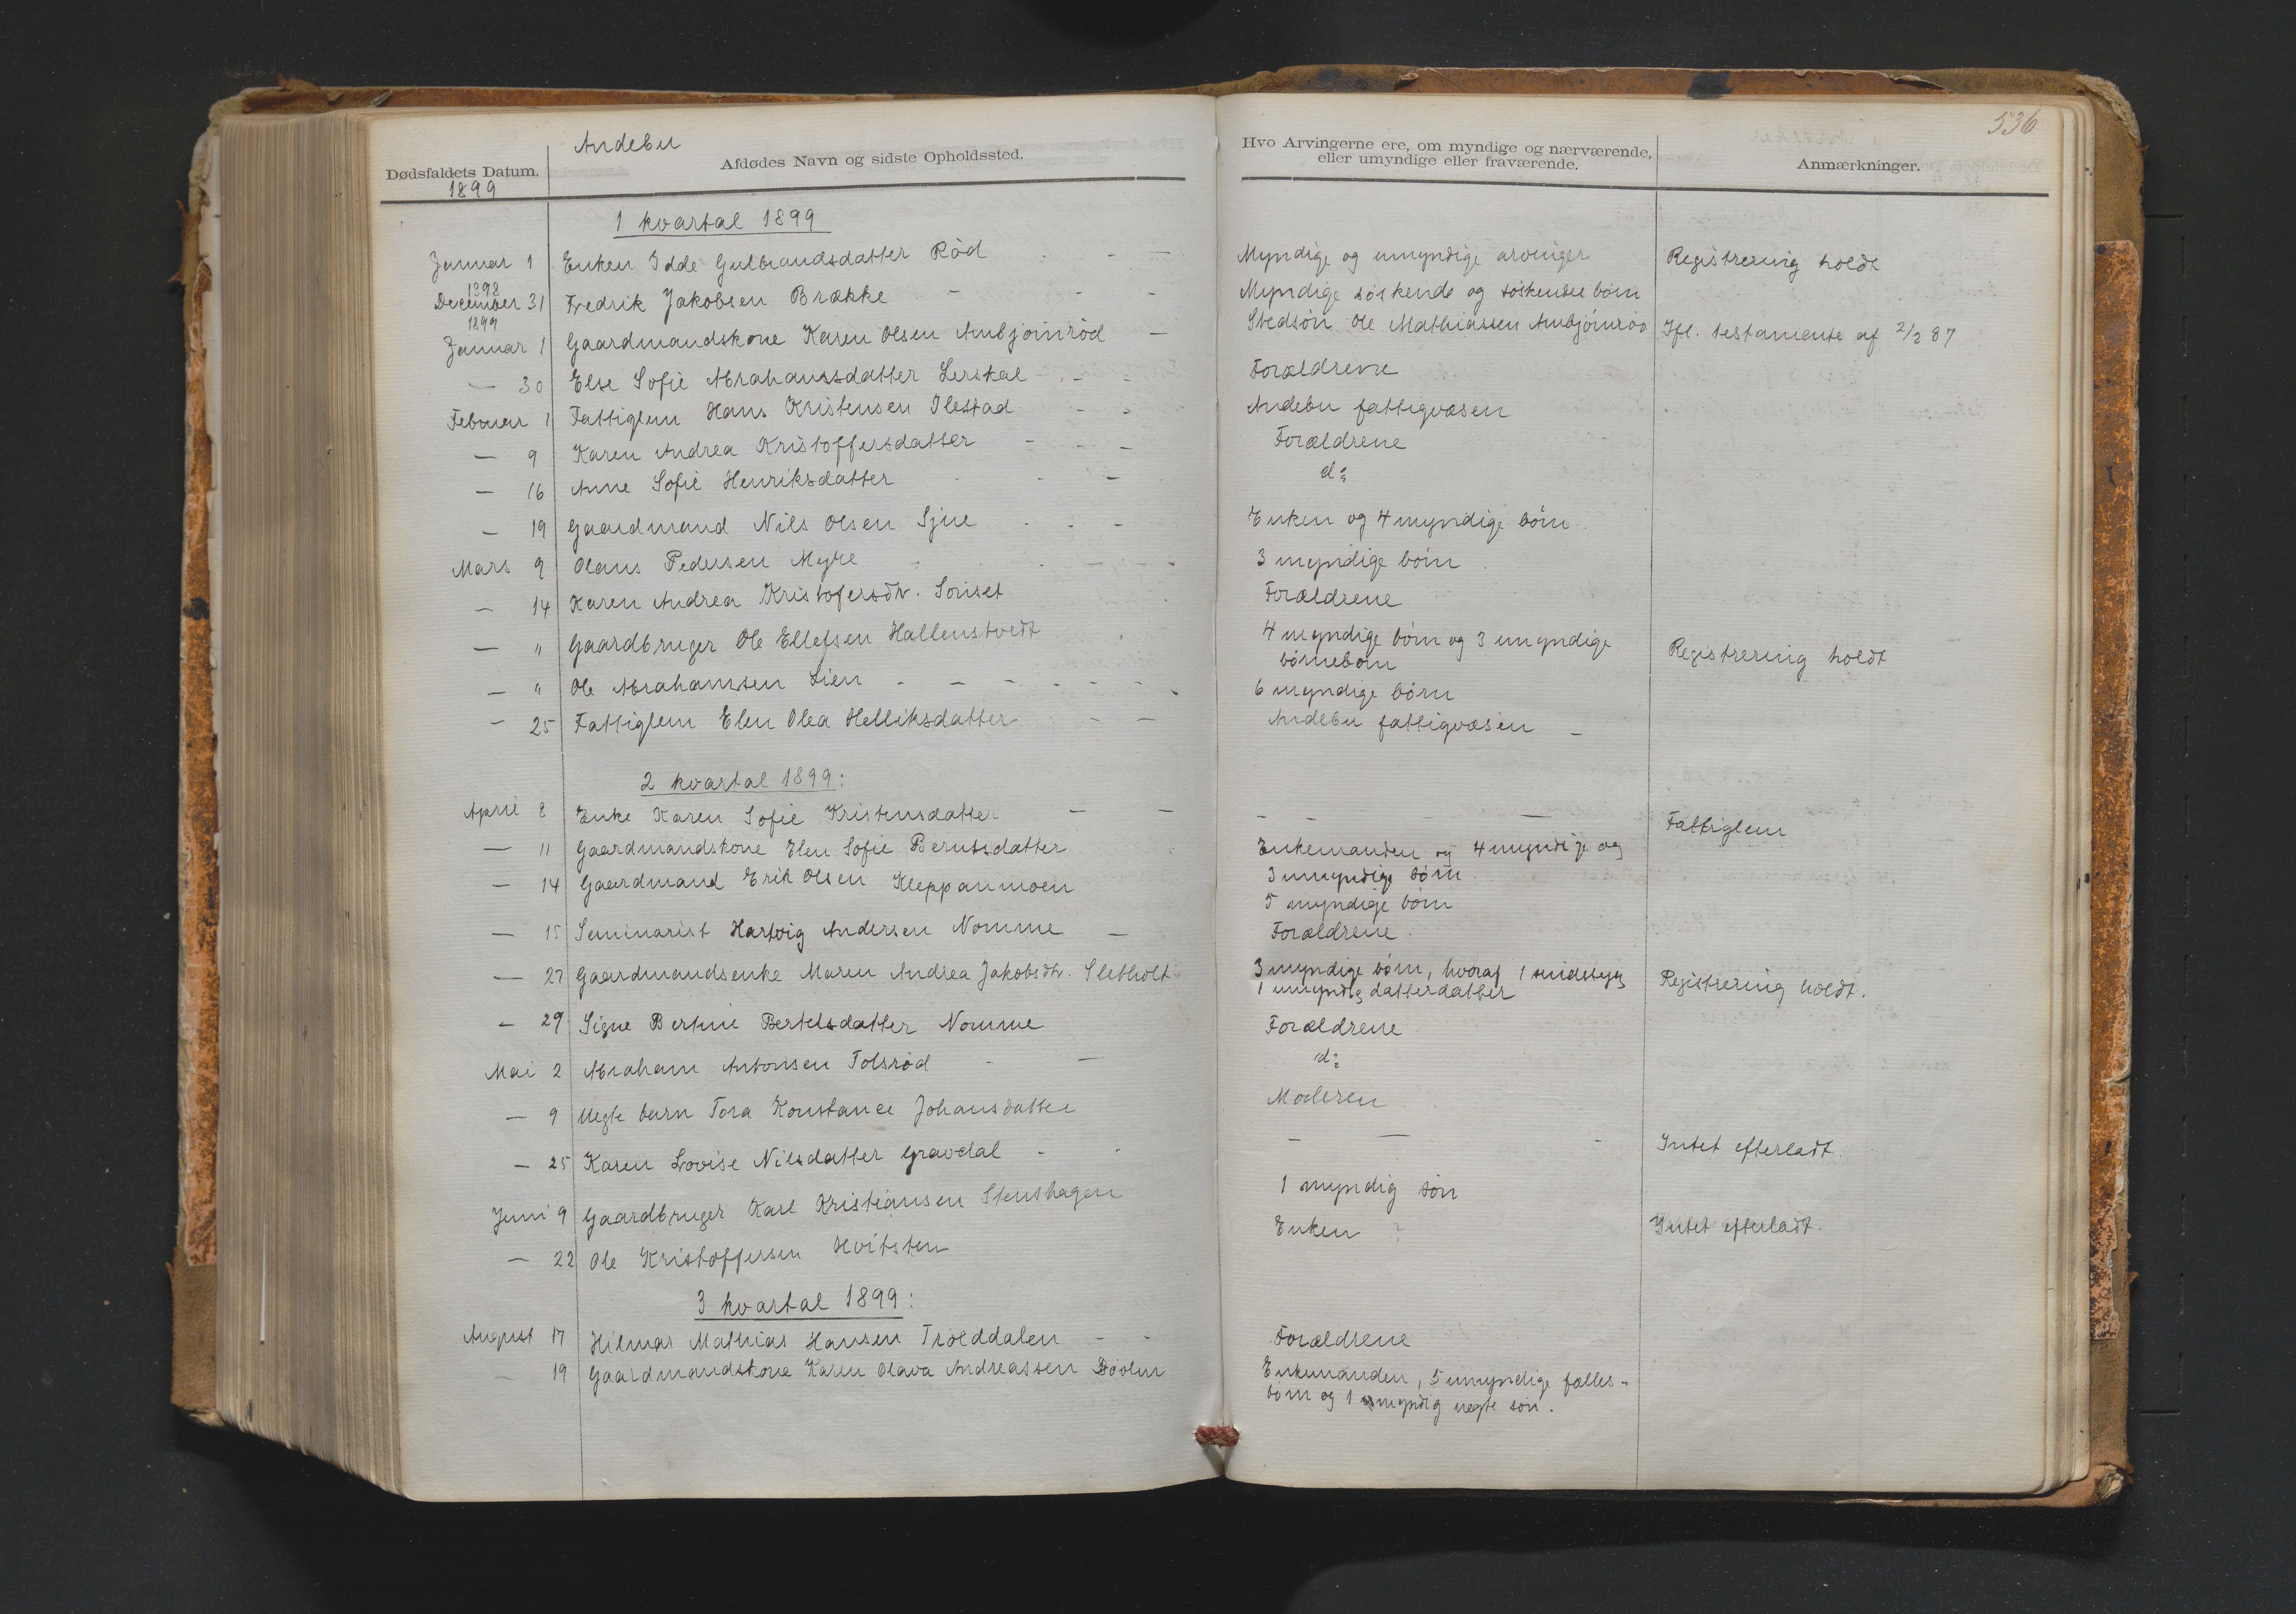 536
Andebu
Dødsfaldets Datum.
Afdødes Navn og sidste Opholdssted.
Hvo Arvingerne ere, om myndige og nærværende,
eller umyndige eller fraværende.
Anmærkninger.
1899
1 kvartal 1899
Januar 1 Enken Idde Gulbrandsdatter Rød - - Myndige og umyndige arvinger Registrering holdt
1898
December 31 Fredrik Jakobsen Brække - - - Myndige søskende og søskendes børn
1899
Januar 1 Gaardmandskone Karen Olsen Anbjørnrød - Stedsøn Ole Mathiassen Anbjørnrød Ifl. testamente af 2/2 87
— 30 Else Sofie Abrahamsdatter Lerskal - - Forældrene
Februar 1 Fattiglem Hans Kristensen Ilestad - - Andebu fattigvæsen
— 9 Karen Andrea Kristoffersdatter - - - Forældrene
— 16 Anne Sofie Henriksdatter - - do
— 19 Gaardmand Nils Olsen Sjue - - - Enken og 4 myndige børn
Mars 9 Olaus Pedersen Myre - - - - 3 myndige børn
— 14 Karen Andrea Kristofersdtr. Sønset Forældrene
— " Gaardbruger Ole Ellefsen Hallenstvedt 4 myndige børn og 3 umyndige
børnebørn Registrering holdt
— " Ole Abrahamsen Lien - - - - - - 6 myndige børn
— 25 Fattiglem Elen Olea Helliksdatter - - Andebu fattigvæsen -
2 kvartal 1899:
April 8 Enke Karen Sofie Kristensdatter - - - - - Fattiglem
— 11 Gaardmandskone Elen Sofie Berntsdatter Enkemanden og 4 myndige og
3 umyndige børn
— 14 Gaardmand Erik Olsen Kleppanmoen 5 myndige børn
— 15 Seminarist Hartvig Andersen Nomme - Forældrene
— 27 Gaardmandsenke Maren Andrea Jakobsdtr. Sletholt 3 myndige børn, hvoraf 1 sindssyg
1 umyndig datterdatter Registrering holdt.
— 29 Signe Bertine Bertelsdatter Nomme Forældrene
Mai 2 Abraham Antonsen Tolsrød - - do
— 9 Uegte barn Tora Konstance Johansdatter Moderen
— 25 Karen Lovise Nilsdatter Gravdal - - - - Intet efterladt.
Juni 9 Gaardbruger Karl Kristiansen Stenshagen 1 myndig søn
— 22 Ole Kristoffersen Hvitsten Enken Intet efterladt.
3 kvartal 1899:
August 17 Hilmar Mathias Hansen Trolddalen - - Forældrene
— 19 Gaardmandskone Karen Olava Andreassen Døvlen Enkemanden, 5 umyndige fælles-
børn og 1 umyndig uegte søn.